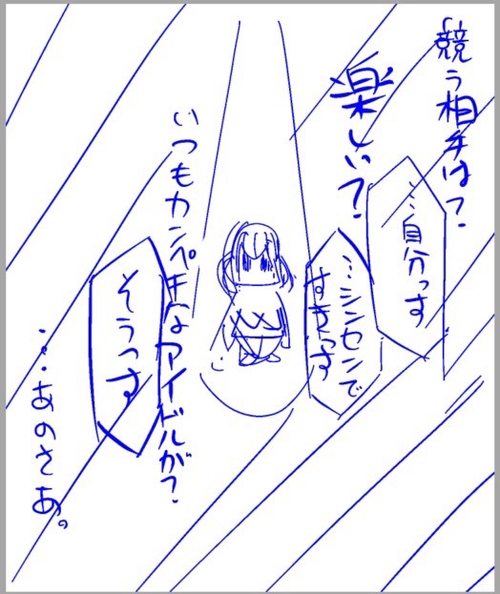 競う相手は？
…自分っす
楽しい？
…シンセンで
すきっす
いつもカンペキなアイドルが？
そうっす
…あのさあ。